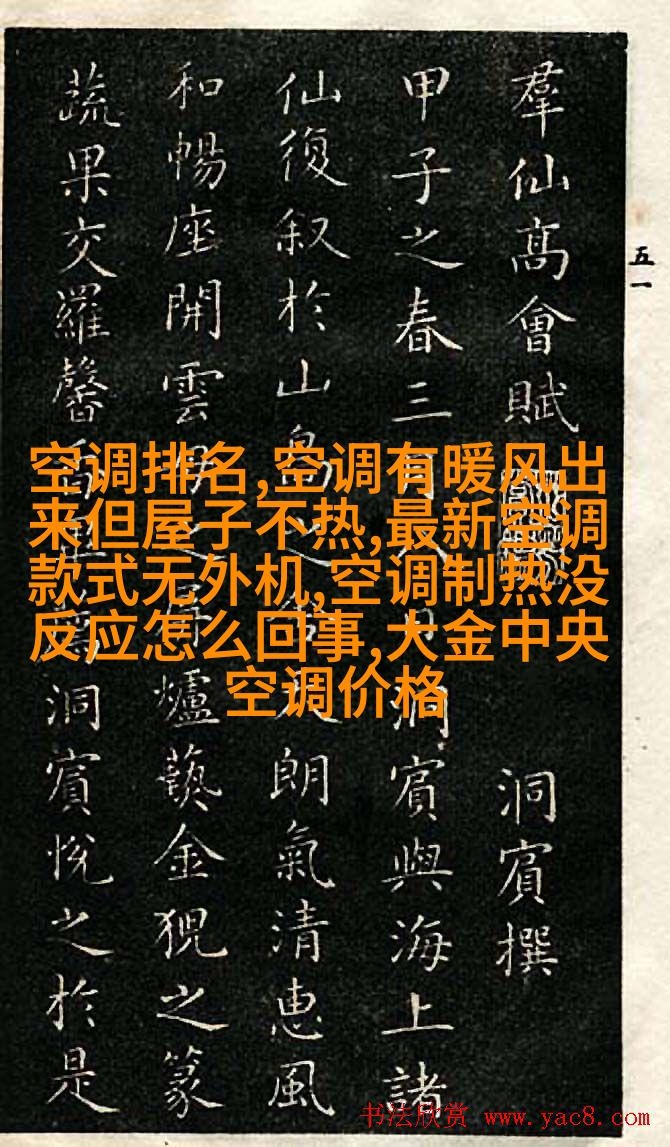 羣仙髙會賦
洞賓撰
甲子之春三月 洞賓與海上諸
仙復叙於山島之 朗氣清惠風
和暢座開雲母之屏爐藝金猊之篆
蔬果交羅馨香 洞賓悅之於是
五一
空调排名,空调有暖风出
来但屋子不热,最新空调
款式无外机,空调制热没
反应怎么回事,大金中央
空调价格
书法欣赏 www.yac8.com